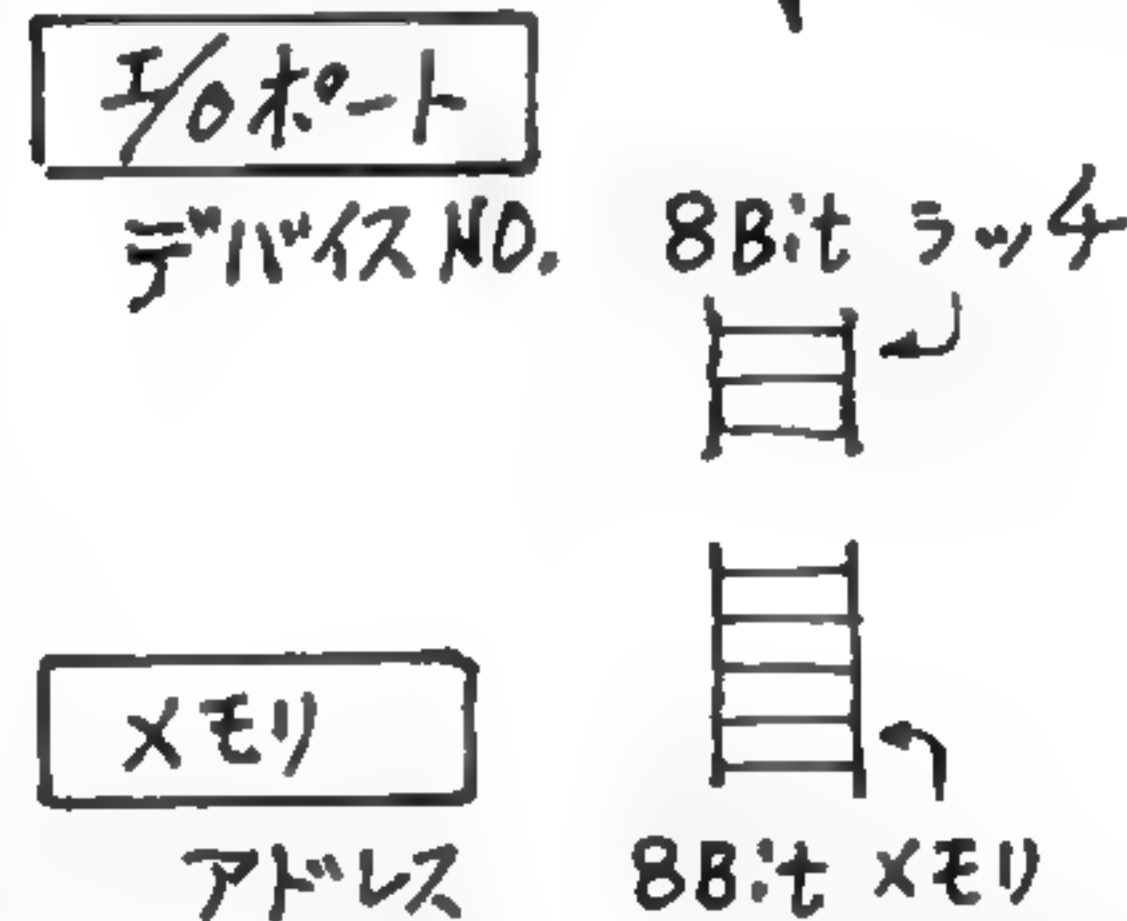 I/Oポート
デバイスNO.
8Bit ラッチ
メモリ
アドレス
8Bit メモリ